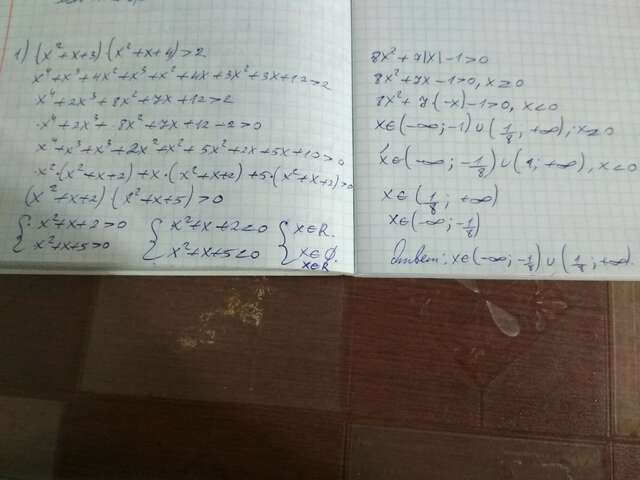 1) (x²+x+3)(x²+x+4)>2
x⁴+x³+4x²+x³+x²+4x+3x²+3x+12>2
x⁴+2x³+8x²+7x+12>2
x⁴+2x³+8x²+7x+12-2>0
x⁴+x³+x³+2x²+x²+5x²+2x+5x+10>0
x²·(x²+x+2)+x·(x²+x+2)+5·(x²+x+2)>0
(x²+x+2)(x²+x+5)>0
{x²+x+2>0 {x²+x+2<0 {x∈R.
x²+x+5>0 x²+x+5<0 x∈∅.
x∈R
8x²+7|x|-1>0
8x²+7x-1>0, x≥0
8x²+7(-x)-1>0, x<0
x∈(-∞;-1)∪(1/8,+∞), x≥0
x∈(-∞;-1/8)∪(1,+∞), x<0
x∈(1/8;+∞)
x∈(-∞;-1/8)
Ответ: x∈(-∞;-1/8)∪(1/8,+∞).